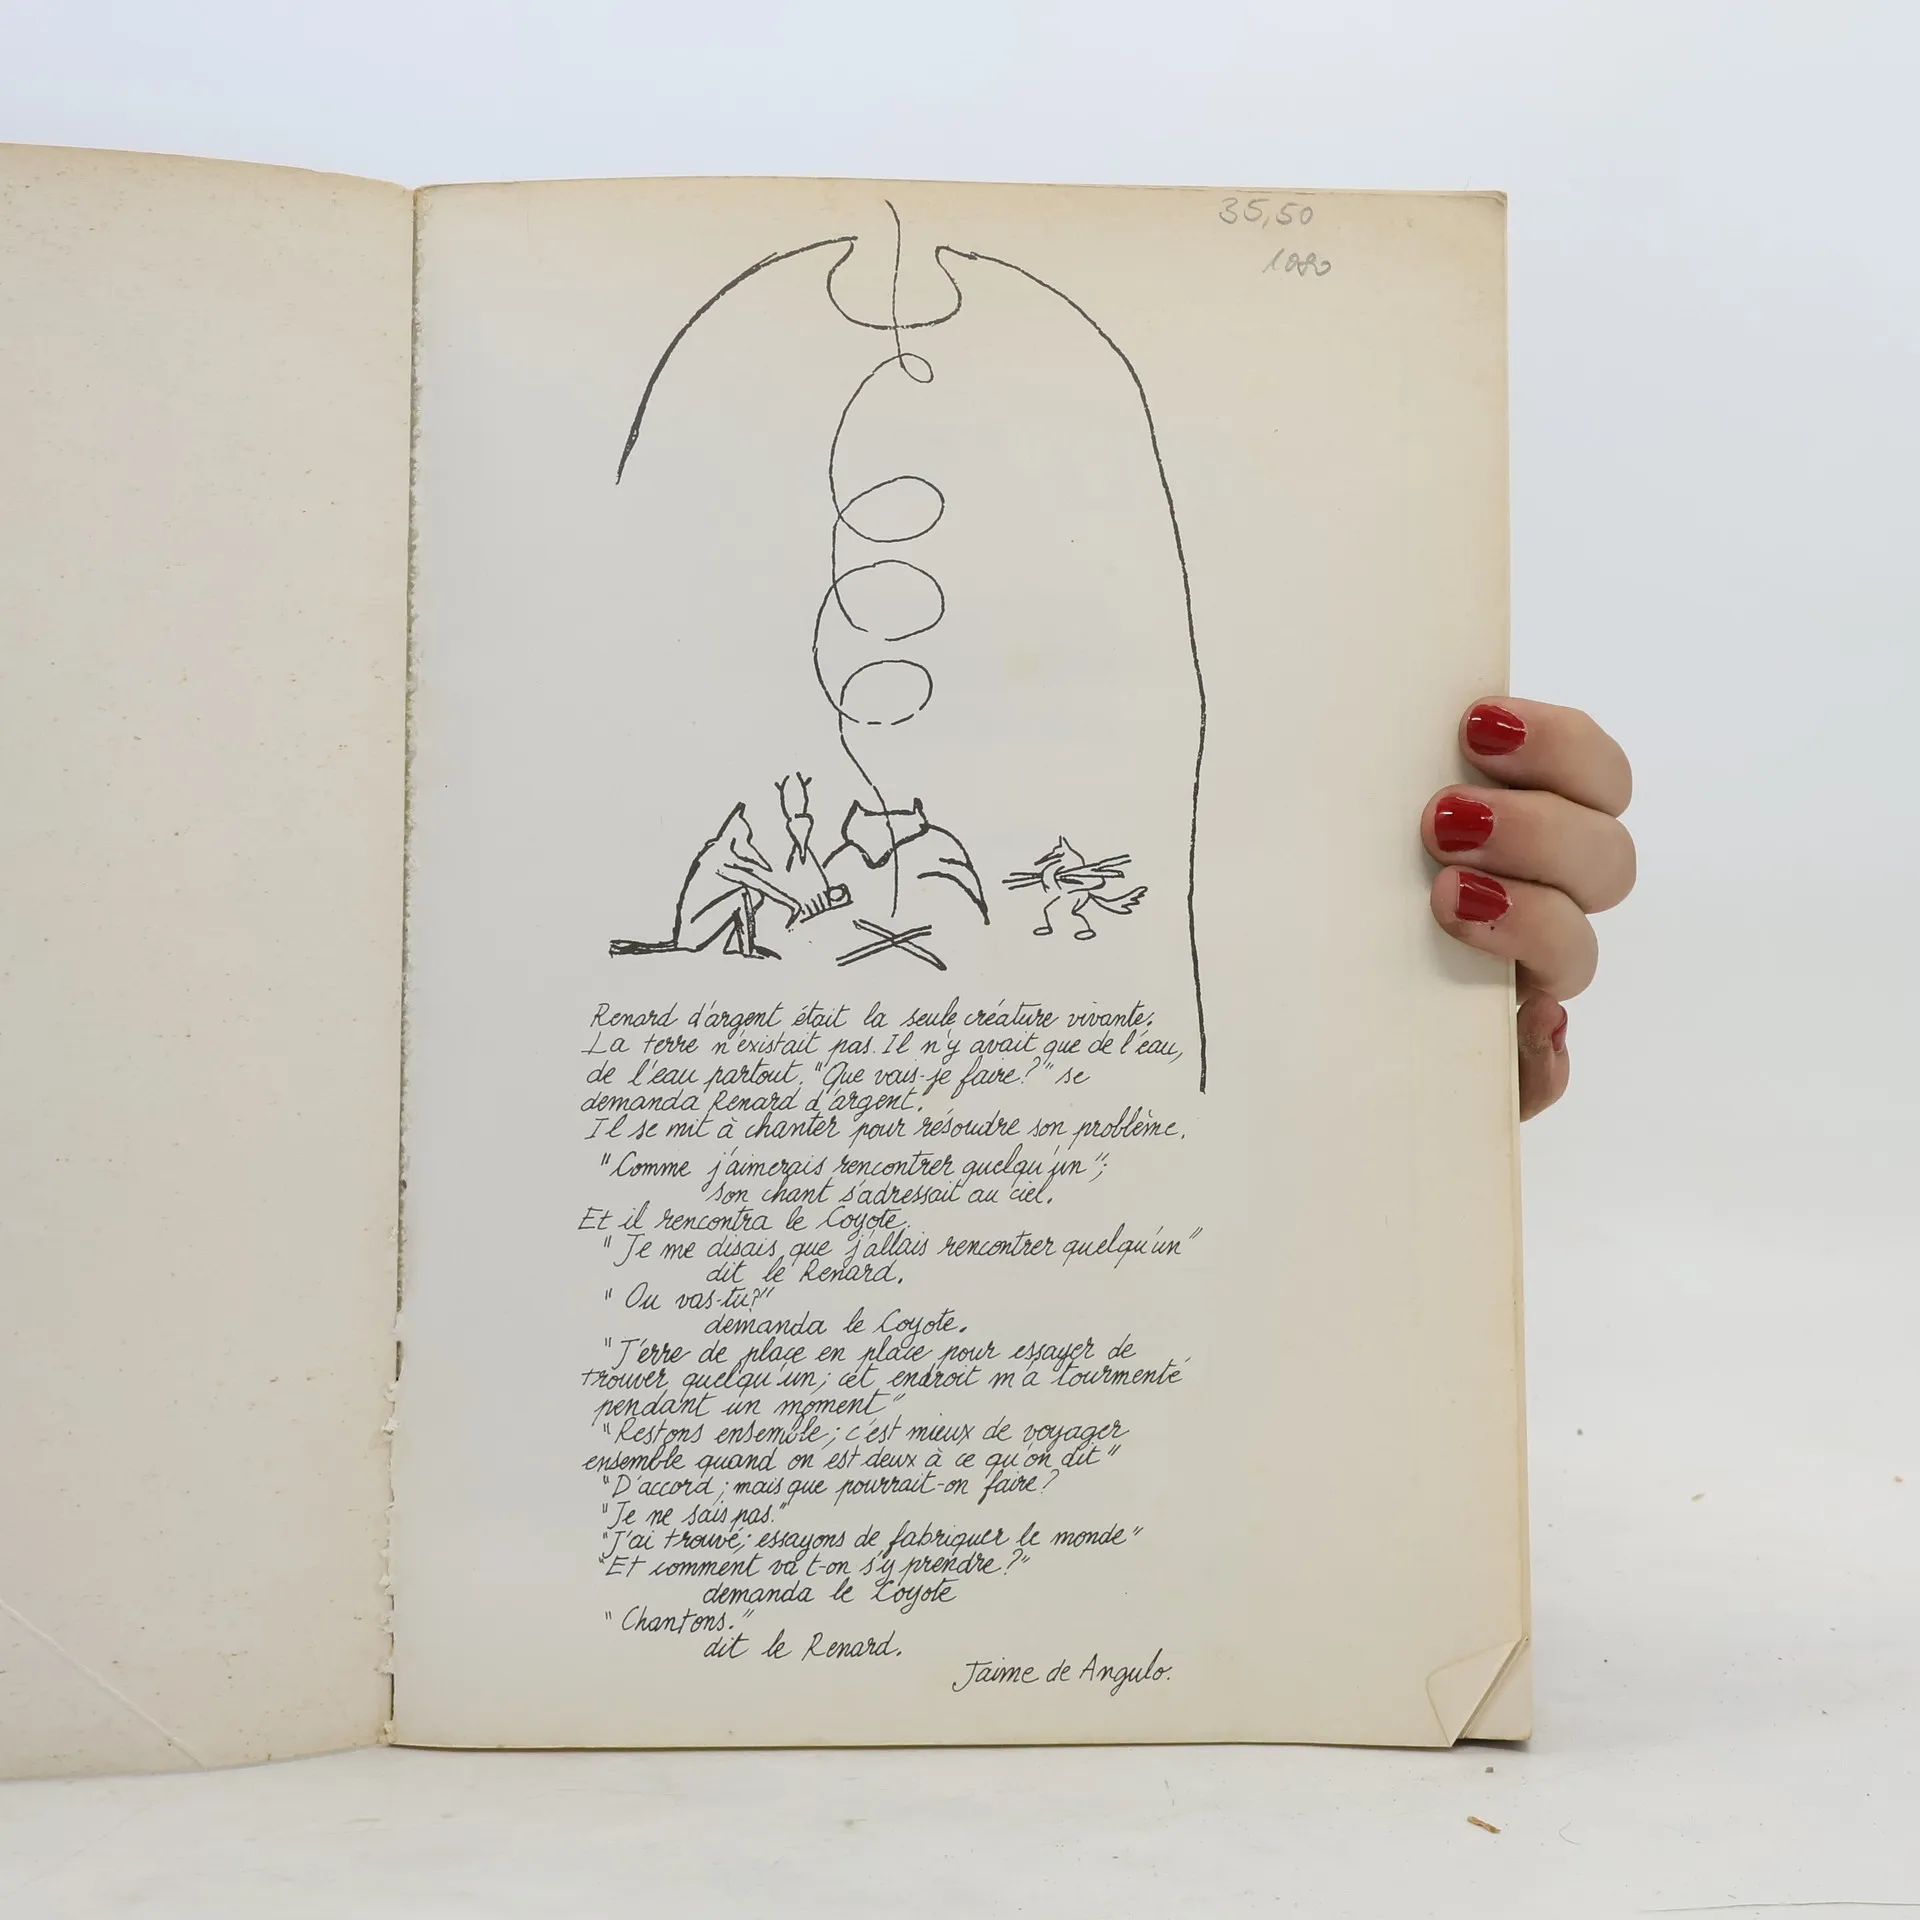 35,50
1980
Renard d'argent était la seule créature vivante.
La terre n'existait pas. Il n'y avait que de l'eau,
de l'eau partout. "Que vais-je faire?" se
demanda Renard d'argent.
Il se mit à chanter pour résoudre son problème.
"Comme j'aimerais rencontrer quelqu'un";
son chant s'adressait au ciel.
Et il rencontra le Coyote.
"Je me disais que j'allais rencontrer quelqu'un"
dit le Renard.
"Ou vas-tu?"
demanda le Coyote.
"J'erre de place en place pour essayer de
trouver quelqu'un; cet endroit m'a tourmenté
pendant un moment"
"Restons ensemble; c'est mieux de voyager
ensemble quand on est deux à ce qu'on dit"
"D'accord; mais que pourrait-on faire?
"Je ne sais pas."
"J'ai trouvé; essayons de fabriquer le monde"
"Et comment va t-on s'y prendre?"
demanda le Coyote
"Chantons."
dit le Renard.
Jaime de Angulo.